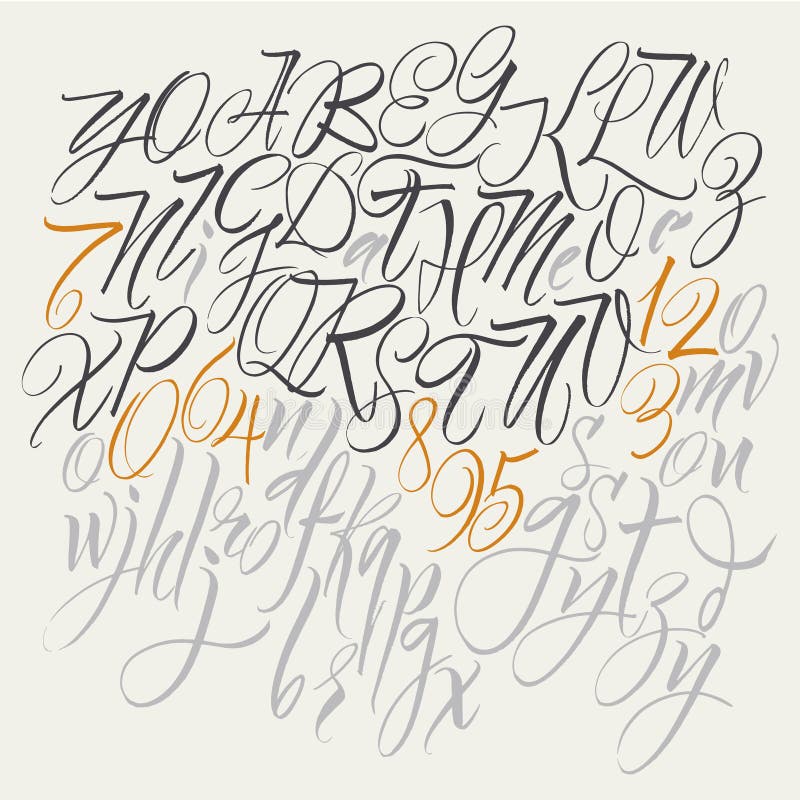 Y O A B E G K L W
N I G D a T H M e O c Z
7 1 2 0
X P Q R S T U V
0 6 4 n 8 3 m v
o 9 5 s o u
w j h l r o d f k a p g s t d
j y t z
b r g x y